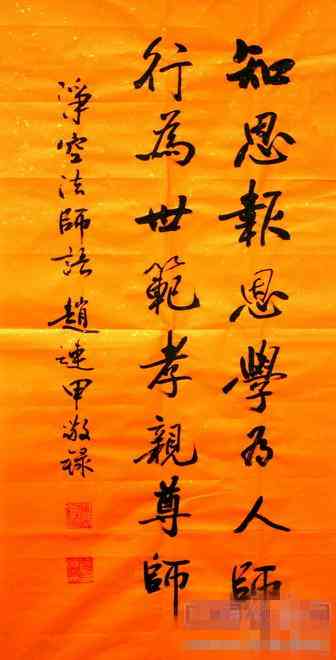 知恩報恩學為人師
行為世範孝親尊師
淨空法師語趙連甲敬録